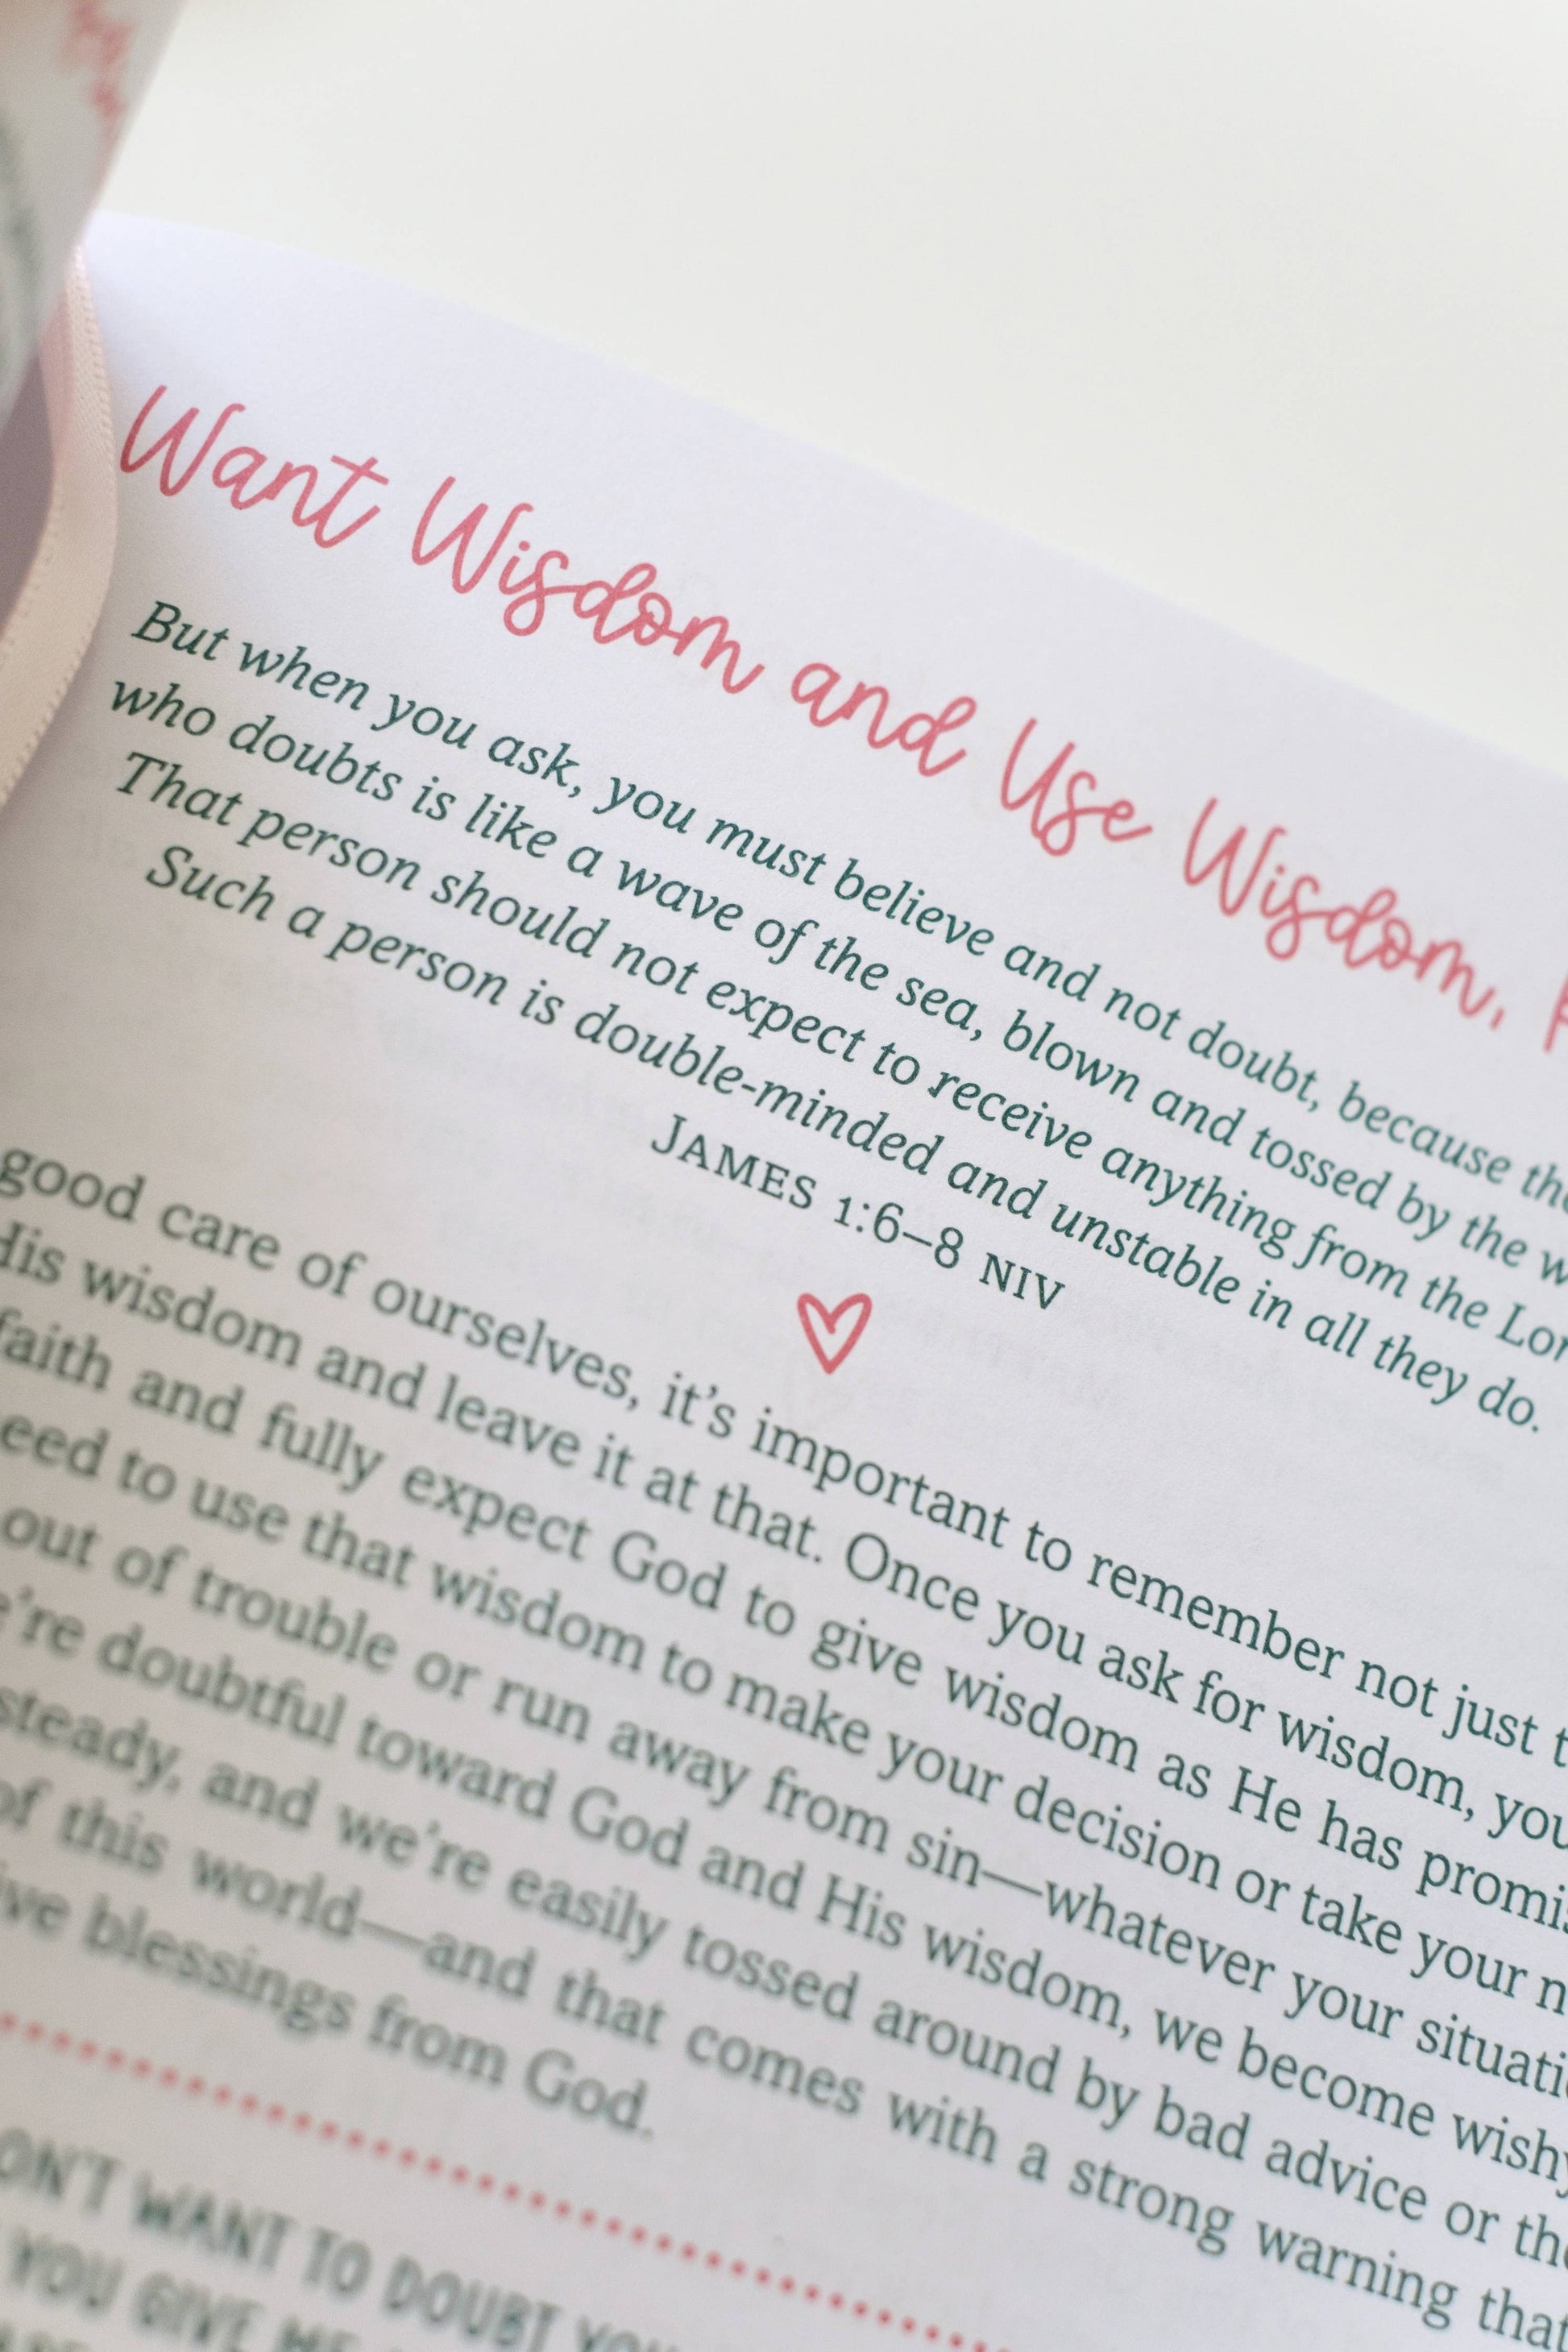 Want Wisdom and Use Wisdom,
But when you ask, you must believe and not doubt, because the
who doubts is like a wave of the sea, blown and tossed by the w
That person should not expect to receive anything from the Lor
Such a person is double-minded and unstable in all they do.
JAMES 1:6–8 NIV
good care of ourselves, it's important to remember not just t
His wisdom and leave it at that. Once you ask for wisdom, you
faith and fully expect God to give wisdom as He has promis
eed to use that wisdom to make your decision or take your n
out of trouble or run away from sin—whatever your situati
e're doubtful toward God and His wisdom, we become wishy
steady, and we're easily tossed around by bad advice or the
of this world—and that comes with a strong warning that
ive blessings from God.
ON'T WANT TO DOUBT YOU
YOU GIVE ME